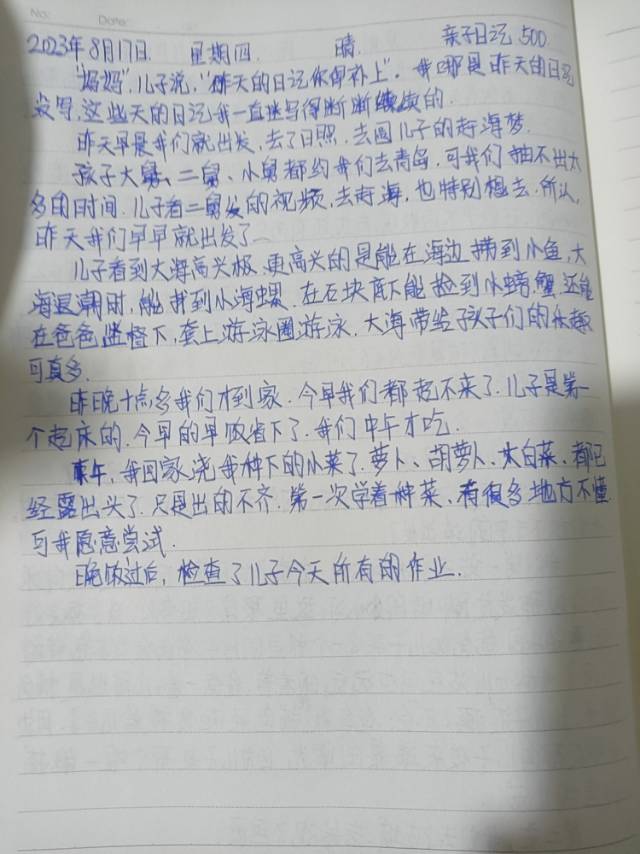 No:
Date:
2023年8月17日. 星期四. 晴. 亲子日记 500.
"妈妈",儿子说,"昨天的日记你得补上". 我
没写,这些天的日记我一直是写得断断续续的.
昨天早晨我们就出发,去了日照.去圆儿子的赶海梦.
孩子大舅、二舅、小舅都约我们去青岛,可我们抽不出太
多的时间.儿子看二舅发的视频,去赶海,也特别想去.所以,
昨天我们早早就出发了
儿子看到大海高兴极.更高兴的是能在海边捞到小鱼,大
海退潮时,能抓到小海螺.在石块底下能捡到小螃蟹.还能
在爸爸 下,套上游泳圈游泳.大海带给孩子们的乐趣
可真多.
昨晚十点多我们才到家.今早我们都起不来了.儿子是第一
个起床的.今早的早饭省下了.我们中午才吃.
下午,我回家浇我种下的小菜了.萝卜、胡萝卜、大白菜,都已
经露出头了.只是出的不齐.第一次学着种菜,有很多地方不懂
可我愿意尝试.
晚饭过后,检查了儿子今天所有的作业.